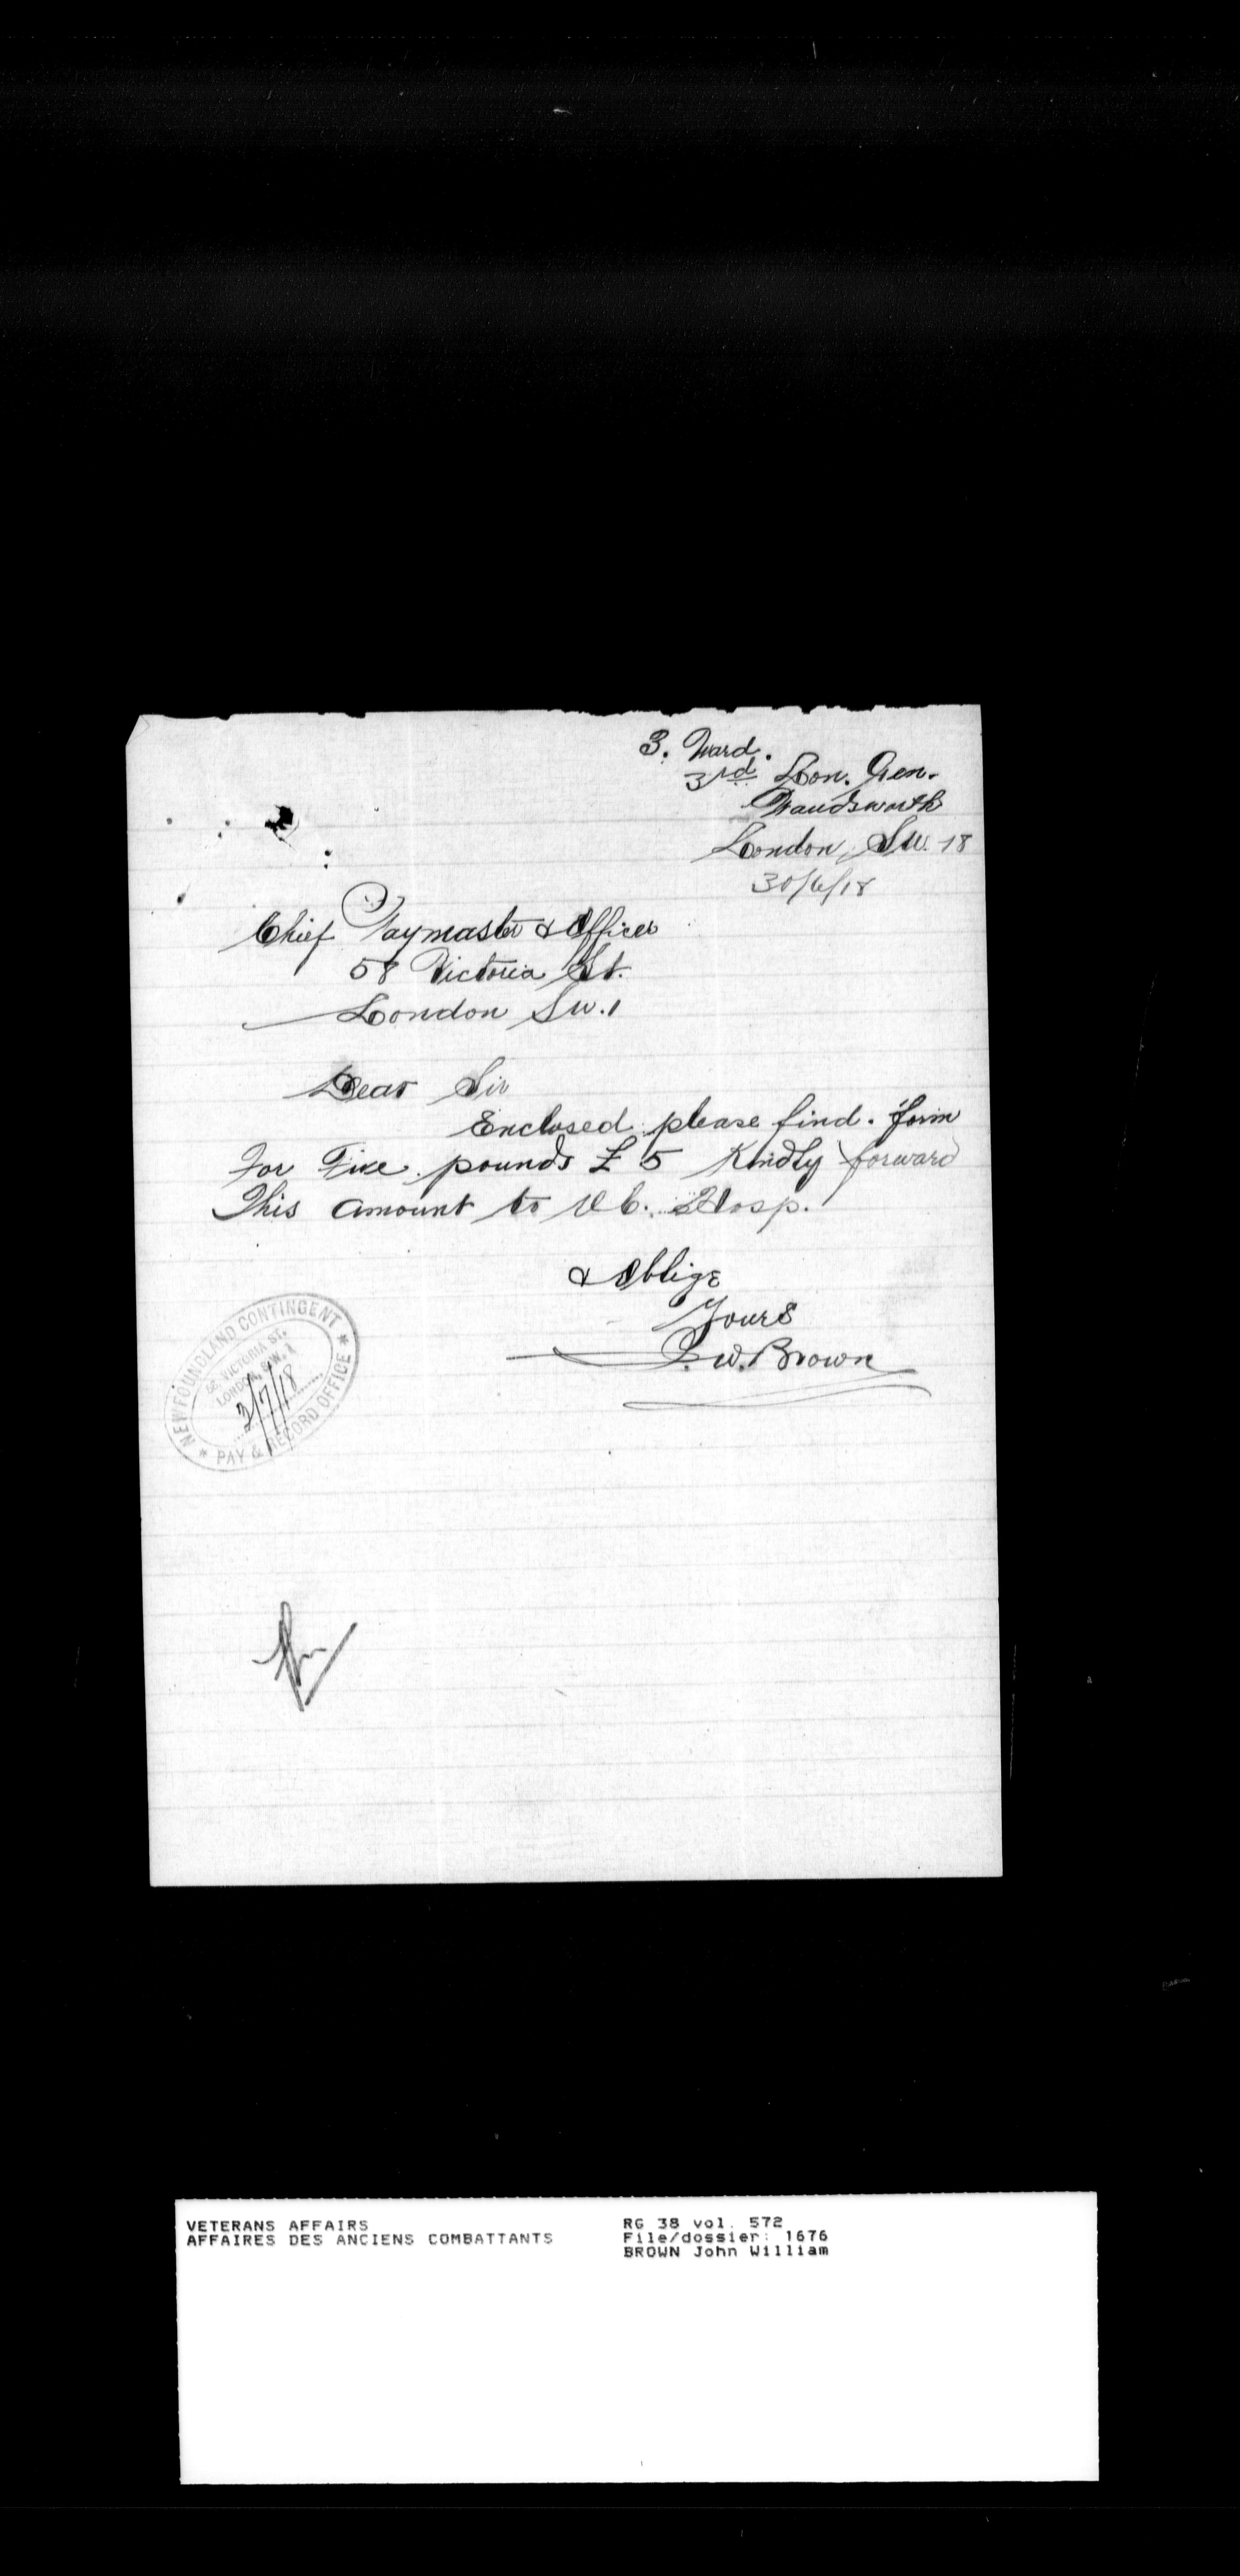 3. Ward.
3rd Lon. Gen.
Wandsworth
London, S.W. 18
30/6/18
Chief Paymaster & Officer
58 Victoria St.
London S.W.1
Dear Sir
Enclosed please find. form
For Five pounds £ 5 Kindly forward
This amount to Hosp.
& Oblige
Yours
J.W. Brown
NEWFOUNDLAND CONTINGENT
58, VICTORIA ST.
LONDON, S.W. 1
2/7/18
PAY & RECORD OFFICE
VETERANS AFFAIRS
AFFAIRES DES ANCIENS COMBATTANTS
RG 38 vol. 572
File/dossier: 1676
BROWN John William